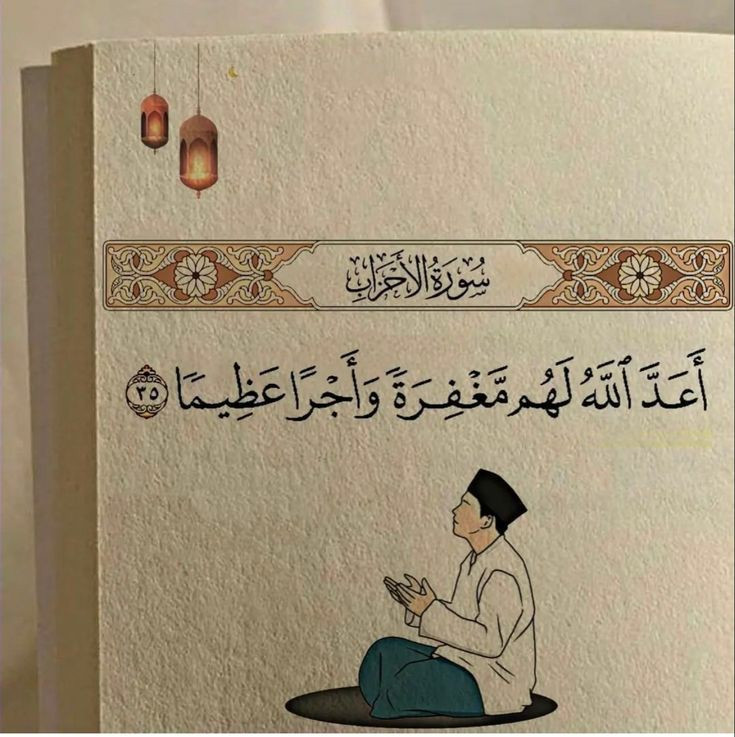 سُورَةُ الأَحْزَابِ
أَعَدَّ ٱللَّهُ لَهُم مَّغْفِرَةً وَأَجْرًا عَظِيمًا ٣٥